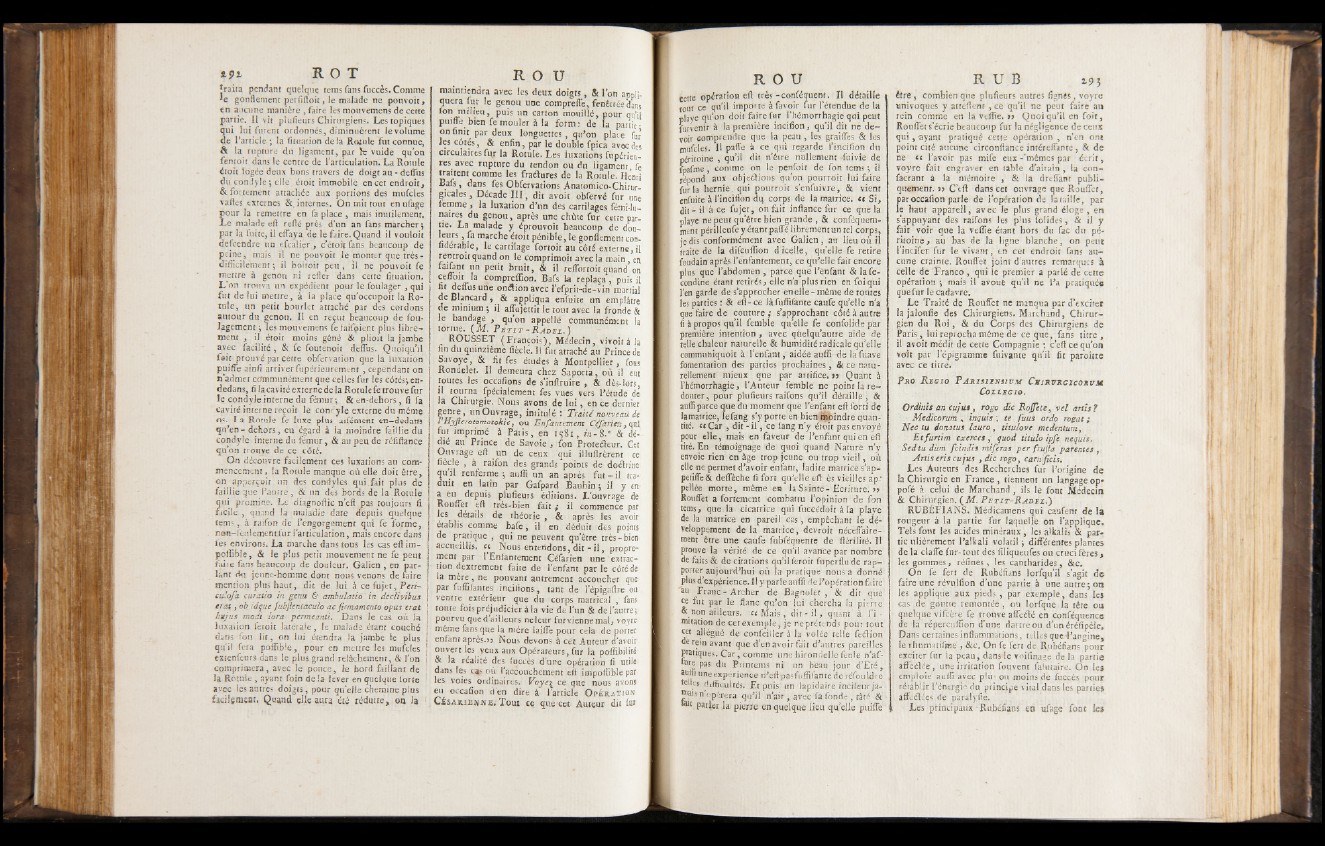 292 R O T
traita pendant quelque tems sans succès. Comme
le gonflement persistoit, le malade ne pouvoit,
en aucune manière, faire les mouvemens de cette
partie. Il vit plusieurs Chirurgiens. Les topiques
qui lui furent ordonnés, diminuèrent le volume
de l'article; la situation de la Rotule fut connue,
& la rupture du ligament, par le vuide qu'on
sentoit dans le centre de l'articulation. La Rotule
étoit logée deux bons travers de doigt au-dessus
du condyle; elle étoit immobile en cet endroit,
& fortement attachée aux portions des muscles
vastes externes & internes. On mit tout en usage
pour la remettre en sa place, mais inutilement.
Le malade est resté près d'un an sans marcher;
par la suite, il essaya de le faire. Quand il vouloit
descendre un escalier, c'étoit sans beaucoup de
peine, mais il ne pouvoit le monter que très-
difficilement; il boitoit peu, il ne pouvoit se
mettre à genou ni rester dans cette situation.
L'on trouva un expédient pour le soulager, qui
fut de lui mettre, à la place qu'occupoit la Ro-
tule, un petit bourlet attaché par des cordons
autour du genou. Il en reçut beaucoup de sou-
lagement; les mouvemens se faisoient plus libre-
ment, il étoit moins gêné & plioit la jambe
avec facilité, & se soutenoit dessus. Quoiqu'il
soit prouvé par cette observation que la luxation
puisse ainsi arriver supérieurement, cependant on
n'admet communément que celles sur les côtés; en-
dedans, si la cavité externe de la Rotule se trouve sur
le condyle interne du fémur; & en-dehors, si la
cavité interne reçoit le condyle externe du même
os. La Rotule se luxe plus aisément en-dedans
qu'en-dehors, eu égard à la moindre saillie du
condyle interne du fémur, & au peu de résistance
qu'on trouve de ce côté.
On découvre facilement ces luxations au com-
mencement, la Rotule manque où elle doit être,
on apperçoit un des condyles qui fait plus de
saillie que l'autre, & un des bords de la Rotule
qui promine. Le diagnostic n'est pas toujours si
facile, quand la maladie date depuis quelque
tems, à raison de l'engorgement qui se forme,
non-seulement sur l'articulation, mais encore dans
les environs. La marche dans tous les cas est im-
possible, & le plus petit mouvement ne se peut
faire sans beaucoup de douleur. Galien, en par-
lant du jeune-homme dont nous venons de faire
mention plus haut, dit de lui à ce sujet, Peri-
culosa curatio in genu & ambulatio in declivibus
erat, ob idque subsistentaculo ac firmamento opus erat
hujus modi loca permeanti. Dans le cas où la
luxation seroit latérale, le malade étant couché
dans son lit, on lui étendra la jambe le plus
qu'il sera possible, pour en mettre les muscles
extenseurs dans le plus grand relâchement, & l'on
comprimera, avec le pouce, le bord saillant de
la Rotule, ayant soin de la lever en quelque sorte
avec les autres doigts, pour qu'elle chemine plus
facilement. Quand elle aura été réduite, on la
R O U
maintiendra avec les deux doigts, & l'on appli-
quera sur le genou une compresse, fenêtrée dans
son milieu, puis un carton mouillé, pour qu'il
puisse bien se mouler à la forme de la partie;
on finit par deux longuettes, qu'on place sur
les côtés, & enfin, par le double spica avec des
circulaires sur la Rotule. Les luxations supérieu-
res avec rupture du tendon ou du ligament, se
traitent comme les fractures de la Rotule. Henri
Bass, dans ses Observations Anatomico-Chirur-
gicales, Décade III, dit avoir observé sur une
femme, la luxation d'un des cartilages sémi-lu-
naires du genou, après une chûte sur cette par-
tie. La malade y éprouvoit beaucoup de dou-
leurs, sa marche étoit pénible, le gonflement con-
sidérable, le cartilage sortoit au côté externe, il
rentroit quand on le comprimoit avec la main, en
faisant un petit bruit, & il ressortoit quand on
cessoit la compression. Bass la replaça, puis il
fit dessus une onction avec l'esprit-de-vin martial
de Blancard, & appliqua ensuite un emplâtre
de minium; il assujettit le tout avec la fronde &
le bandage, qu'on appelle communément la
torme. (M. PETIT-RADEL.)
ROUSSET (François), Médecin, vivoit à la
fin du quinzième siècle. Il fut attaché au Prince de
Savoye, & fit ses études à Montpellier, sous
Rondelet. Il demeura chez Saporta, où il eut
toutes les occasions de s'instruire, & dès-lors,
il tourna spécialement ses vues vers l'étude de
la Chirurgie. Nous avons de lui, en ce dernier
genre, un Ouvrage, intitulé: Traité nouveau de
l'Hystérotomotokie, ou Enfantement Césarien, qui
fut imprimé à Paris, en 1581, in-8.° & dé-
dié au Prince de Savoie, son Protecteur. Cet
Ouvrage est un de ceux qui illustrèrent ce
siècle, à raison des grands points de doctrine
qu'il renferme; aussi un an après fut-il tra-
duit en latin par Gaspard Bauhin; il y en
a eu depuis plusieurs éditions. L'ouvrage de
Rousset est très-bien fait; il commence par
les détails de théorie, & après les avoir
établis comme base, il en déduit des points
de pratique, qui ne peuvent qu'être très-bien
accueillis. « Nous entendons, dit-il, propre-
ment par l'Enfantement Césarien une extrac-
tion dextrement faite de l'enfant par le côté de
la mère, ne pouvant autrement accoucher que
par suffisantes incisions, tant de l'épigastre ou
ventre extérieur que du corps matrical, sans
toute fois préjudicier à la vie de l'un & de l'autre;
pourvu que d'ailleurs ne leur survienne mal, voyre
même sans que la mère laisse pour cela de porter
enfant après.» Nous devons à cet Auteur d'avoir
ouvert les yeux aux Opérateurs, sur la possibilité
& la réalité des succès d'une opération si utile
dans les cas où l'accouchement est impossible par
les voies ordinaires. Voyez ce que nous avons
eu occasion d'en dire à l'article OPÉRATION
CÉSARIENNE. Tout ce que cet Auteur dit sur
R O U
cette opération est très-conséquent. Il détaille
tout ce qu'il importe à savoir sur l'étendue de la
playe qu'on doit faire sur l'hémorrhagie qui peut
survenir à la première incision, qu'il dit ne de-
voir comprendre que la peau, les graisses & les
muscles. Il passe à ce qui regarde l'incision du
péritoine, qu'il dit n'être nullement suivie de
spasme, comme on le pensoit de son tems; il
répond aux objections qu'on pourroit lui faire
sur la hernie qui pourroit s'ensuivre, & vient
ensuite à l'incision du corps de la matrice. « Si,
dit-il à ce sujet, on fait instance sur ce que la
playe ne peut qu'être bien grande, & conséquem-
ment périlleuse y étant passé librement un tel corps,
je dis conformément avec Galien, au lieu où il
traite de la discussion d'icelle, qu'elle se retire
soudain après l'enfantement, ce qu'elle fait encore
plus que l'abdomen, parce que l'enfant & la se-
condine étant retirés, elle n'a plus rien en soi qui
l'en garde de s'approcher en elle-même de toutes
les parties: & est-ce là suffisante cause qu'elle n'a
que faire de couture; s'approchant côté à autre
si à propos qu'il semble qu'elle se consolide par
première intention, avec quelqu'autre aide de
telle chaleur naturelle & humidité radicale qu'elle
communiquoit à l'enfant, aidée aussi de la suave
fomentation des parties prochaines, & ce natu-
rellement mieux que par artifice.» Quant à
l'hémorrhagie, l'Auteur semble ne point la re-
douter, pour plusieurs raisons qu'il détaille, &
aussi parce que du moment que l'enfant est sorti de
la matrice, le sang s'y porte en bien moindre quan-
tité. « Car, dit-il, ce sang n'y étoit pas envoyé
pour elle, mais en faveur de l'enfant qui en est
tiré. En témoignage de quoi quand Nature n'y
envoie rien en âge trop jeune ou trop vieil, où
elle ne permet d'avoir enfant, ladite matrice s'ap-
petisse & dessèche si fort qu'elle est ès vieilles ap-
pellée morte, même en la Sainte-Ecriture.»
Rousset a fortement combattu l'opinion de son
tems, que la cicatrice qui succédoit à la playe
de la matrice en pareil cas, empêchant le dé-
veloppement de la matrice, devroit nécessaire-
ment être une cause subséquente de stérilité. Il
prouve la vérité de ce qu'il avance par nombre
de faits & de citations qu'il seroit superflu de rap-
porter aujourd'hui où la pratique nous a donné
plus d'expérience. Il y parle aussi de l'opération faite
au Franc-Archer de Bagnolet, & dit que
ce fut par le flanc qu'on lui chercha la pierre
& non ailleurs. « Mais, dit-il, quant à l'i-
mitation de cet exemple, je ne prétends pour tout
cet allégué de conseiller à la volée telle section
de rein avant que d'en avoir fait d'autres pareilles
pratiques. Car, comme une hirondelle seule n'as-
sure pas du Printems ni un beau jour d'Eté,
aussi une expérience n'est pas suffisante de résoudre
telles difficultés. Et puis un lapidaire inciseur ja-
mais n'opérera qu'il n'ait, avec sa sonde, tâté &
fait parler la pierre en quelque lieu qu'elle puisse
R U B 293
être, combien que plusieurs autres signes, voyre
univoques y attestent, ce qu'il ne peut faire au
rein comme en la vessie.» Quoi qu'il en soit,
Rousset s'écrie beaucoup sur la négligence de ceux
qui, ayant pratiqué cette opération, n'en ont
point cité aucune circonstance intéressante, & de
ne « l'avoir pas mise eux-mêmes par écrit,
voyre fait engraver en table d'airain, la con-
sacrant à la mémoire, & la dressant publi-
quement.» C'est dans cet ouvrage que Rousset,
par occasion parle de l'opération de la taille, par
le haut appareil, avec le plus grand éloge, en
s'appuyant des raisons les plus solides, & il y
fait voir que la vessie étant hors du sac du pé-
ritoine, au bas de la ligne blanche, on peut
l'inciser sur le vivant, en cet endroit sans au-
cune crainte. Rousset joint d'autres remarques à
celle de Franco, qui le premier a parlé de cette
opération; mais il avoue qu'il ne l'a pratiquée
que sur le cadavre.
Le Traité de Rousset ne manqua par d'exciter
la jalousie des Chirurgiens. Marchand, Chirur-
gien du Roi, & du Corps des Chirurgiens de
Paris, lui reprocha même de ce que, sans titre,
il avoit médit de cette Compagnie; c'est ce qu'on
voit par l'épigramme suivante qu'il fit paroître
avec ce titre.
PRO REGIO PARISIENSIUM CHIRURGICORUM
COLLEGIO.
Ordinis an cujus, rogo die Rossete, vel artis?
Medicorum, inquis; te suus ordo rogat;
Nec tu donatus lauro, titulove medentum,
Et furtim exerces, quod titulo ipse nequis.
Sed tu dum scindis miseras per frusta parentes,
Artis eris cujus, dic rogo, carnificis.
Les Auteurs des Recherches sur l'origine de
la Chirurgie en France, tiennent un langage op-
posé à celui de Marchand, ils le font Médecin
& Chirurgien. (M. PETIT-RADEL.)
RUBÉFIANS. Médicamens qui causent de la
rougeur à la partie sur laquelle on l'applique.
Tels sont les acides minéraux, les alkalis & par-
ticulièrement l'alkali volatil, différentes plantes
de la classe sur-tout des siliqueuses ou crucifères,
les gommes, résines, les cantharides, &c.
On se sert de Rubéfians lorsqu'il s'agit de
faire une révulsion d'une partie à une autre; on
les applique aux pieds, par exemple, dans les
cas de goutte remontée, ou lorsque la tête ou
quelque viscère se trouve affecté en conséquence
de la répercussion d'une dartre ou d'un érésipèle.
Dans certaines inflammations, telles que l'angine,
le rhumatisme, &c. On se sert de Rubéfians pour
exciter sur la peau, dans le voisinage de la partie
affectée, une irritation souvent salutaire. On les
emploie aussi avec plus ou moins de succès pour
rétablir l'énergie du principe vital dans les parties
affectées de paralysie.
Les principaux Rubéfians en usage sont les